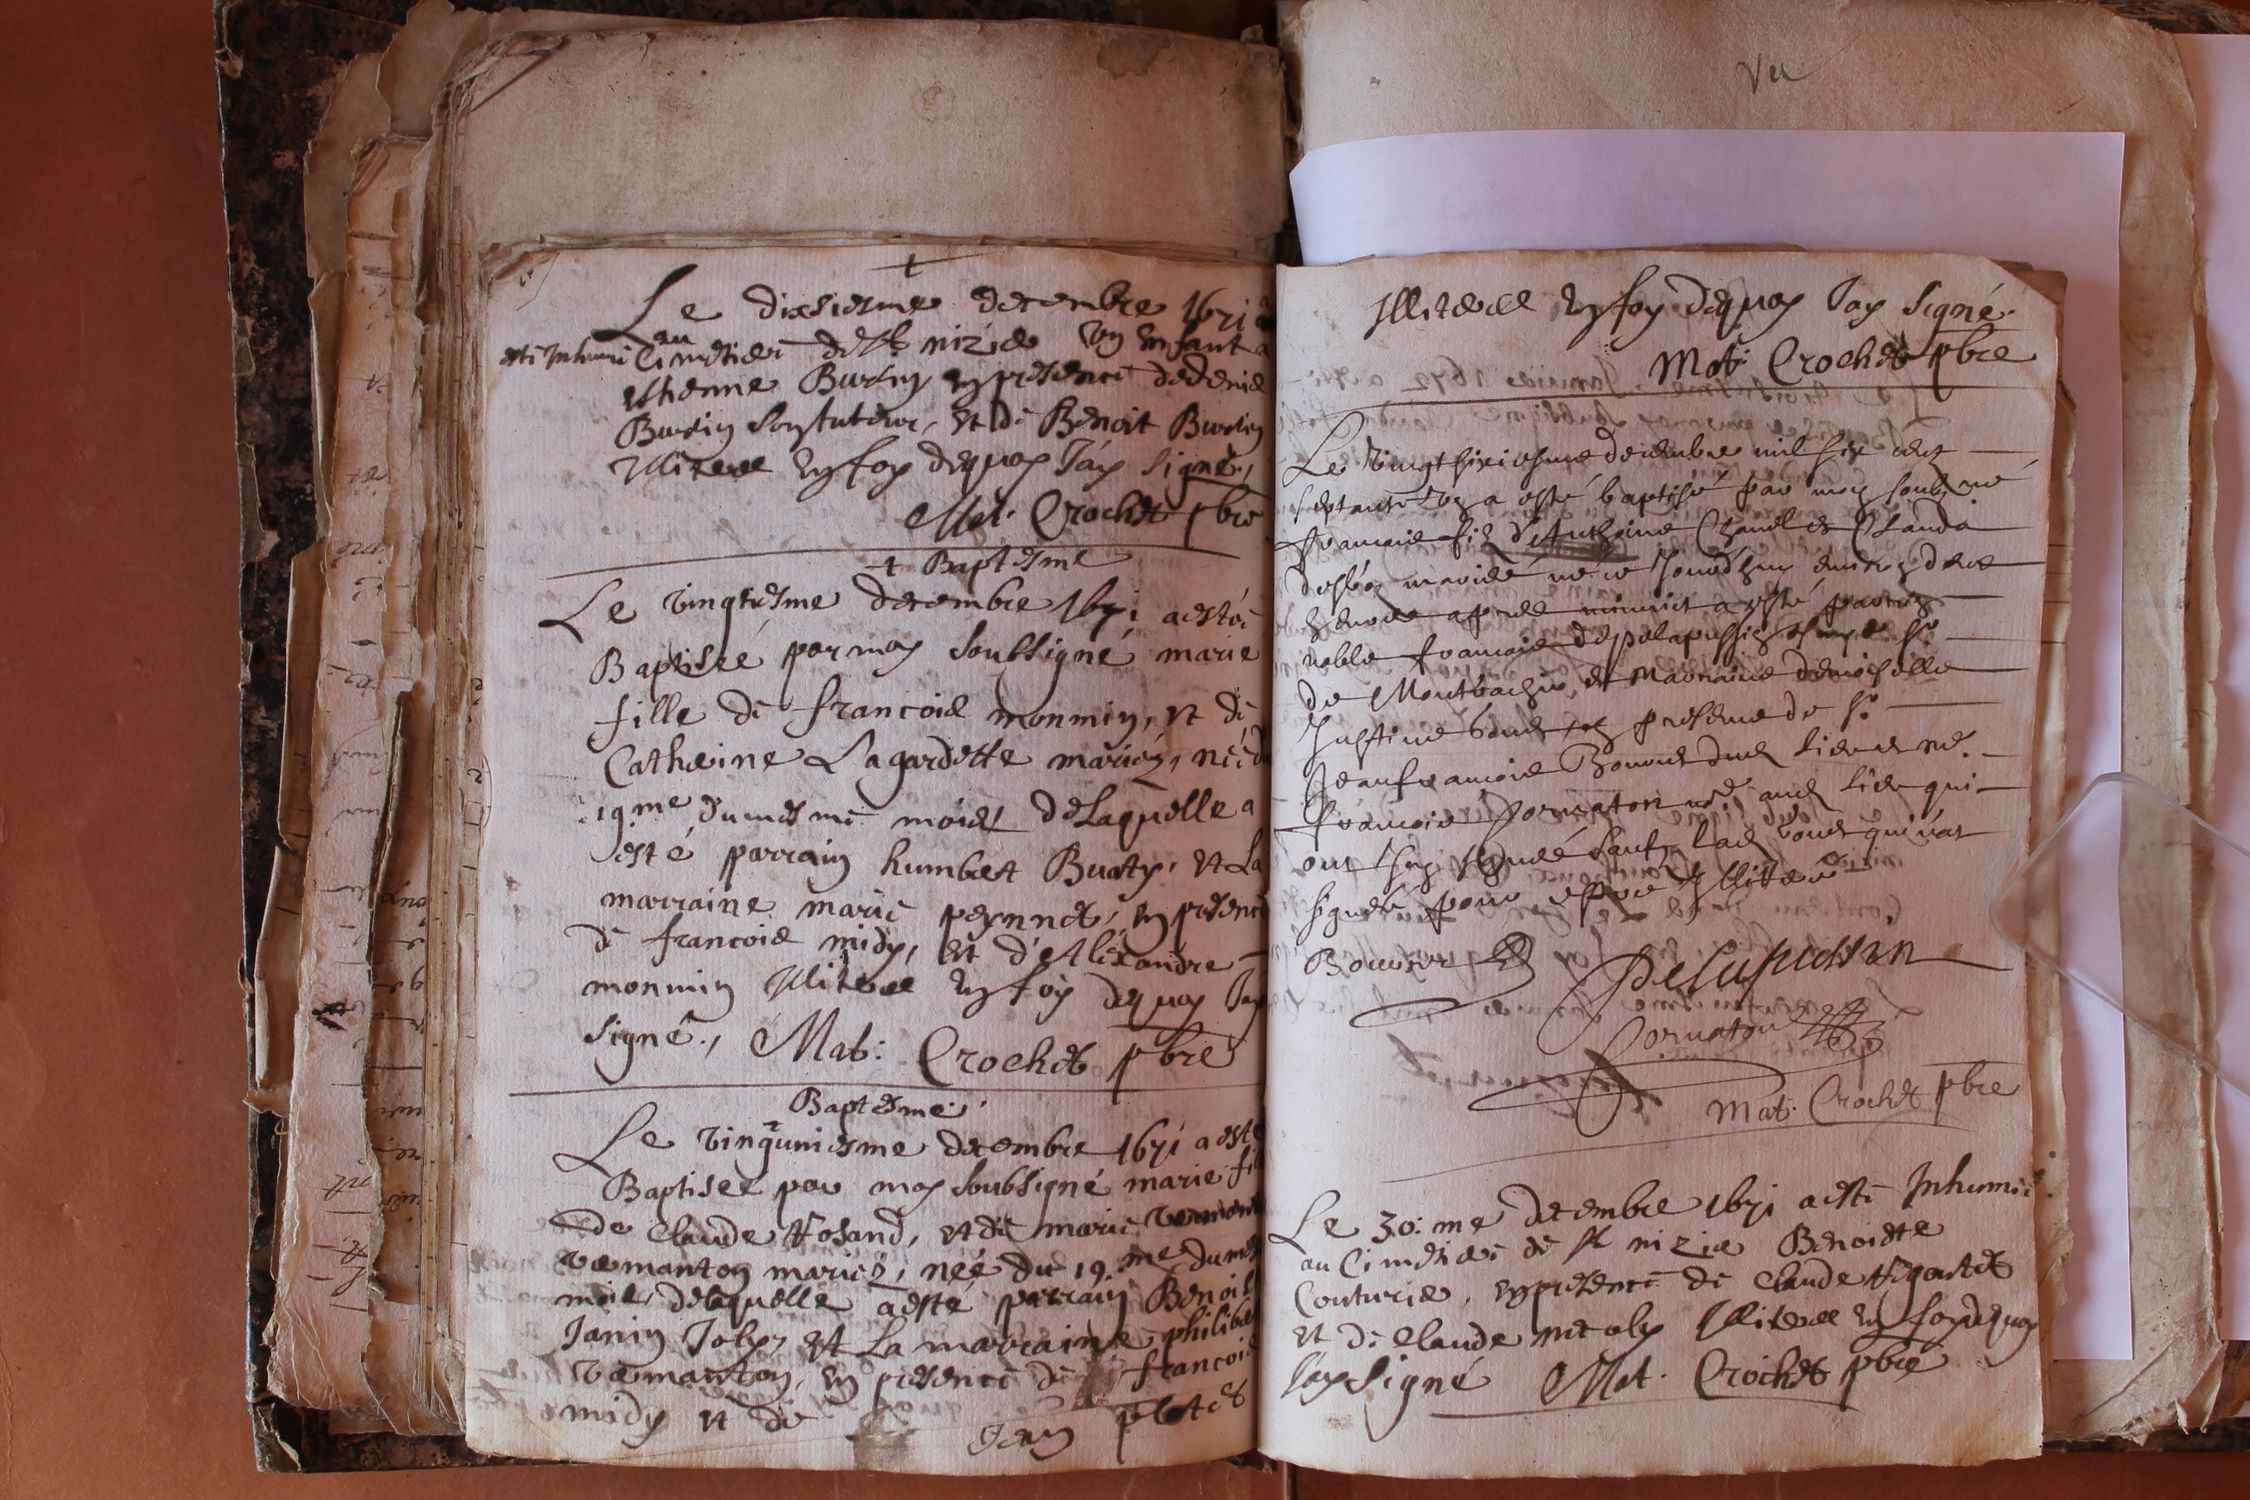 Le dixsiesme decembre 1671 a
esté Inhumé au Cimetiere de St nizie un enfant a
estienne Burdin en presence de denis
Burdin son tuteur, et de Benoit Burdin
Illiteres en foy dequoy J'ay signé,
Mat. Crochet pbre
+ Baptesme
Le vingtiesme decembre 1671 a esté
Baptisée par moy soubsigné marie
fille de francois monmin, et de
Catherine Lagardette mariés, née du
19.me du mesme mois de Laquelle a
esté parrain humbert Buaty, et La
marraine marie peynnet, en presence
de francois midy, et d'Alexandre
monmin Illiteres en foy dequoy J'ay
signé., Mat: Crochet pbre
Baptesme
Le vingtuniesme decembre 1671 a esté
Baptisée par moy soubsigné marie fille
de Claude Rosand, et de marie
mariés, née du 19.me du mesme
mois, delaquelle a esté parrain Benoit
Janin Joly, et La marraine philiberte
en presence de francois
midy et de Jean platet
Vu
Illiteres en foy dequoy J'ay signé.
Mat: Crochet pbre
Le vingt sixiesme decembre mil six cent
septante un a esté baptisé par moy soubsigné
francois filz d'Anthoine et Clauda
mariés né ce jourdhuy environ deux
heures apres minuict a esté parrain
noble francois
de et marraine demoiselle
presence de Sr
Jean francois Bouvier dud lieu et me.
francois Cornaton aud lieu qui
ont signé sauf lad qui n'at
signé pour estre Illiterée
Bouvier Delapuissin
Cornaton
Mat. Crochet pbre
Le 30.me decembre 1671 a esté Inhumée
au Cimetiere de St nizie Benoiste
Couturie, en presence de Claude
et de Claude Illiteres en foy dequoy
J'ay signé Mat. Crochet pbre